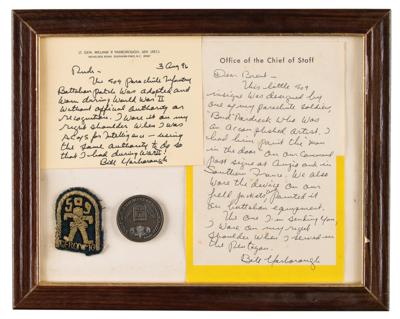 LT. GEN. WILLIAM P. YARBOROUGH, USA (RET.)
3 Aug 96
The 509 Parachute Infantry
Battalion Patch was adopted and
worn during World War II
without official authority or
recognition. I wore it on my
right shoulder when I was
ACofS for Intelligence - using
the same authority to do so
that I had during WWII!
Bill Yarborough
Office of the Chief of Staff
Dear Brent -
This little 509
insigne was designed by
one of my parachute soldiers,
Bud Pardeeck who was
an accomplished artist. I
had him paint the "man
in the door" on our Command
post signs at Anzio and in
Southern France. We also
wore the device on our
field jackets, painted it
on battalion equipment.
The one I'm sending you
I wore on my right
shoulder when I served in
the Pentagon.
Bill Yarborough
509
GERONIMO